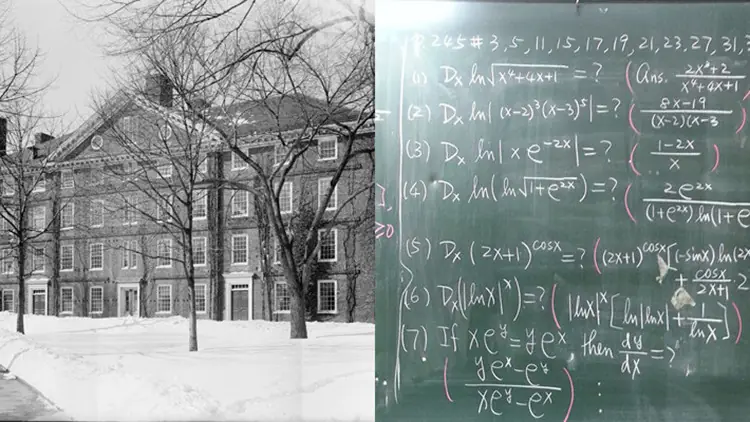 P. 245 # 3, 5, 11, 15, 17, 19, 21, 23, 27, 31, 3
(1) Dₓ ln√(x⁴+4x+1) = ? (Ans. (2x³+2)/(x⁴+4x+1)
(2) Dₓ ln|(x-2)³(x-3)⁵| = ? ( (8x-19)/((x-2)(x-3)
(3) Dₓ ln|x e^(-2x)| = ? ( (1-2x)/x )
(4) Dₓ ln(ln√(1+e^(2x))) = ? ( 2e^(2x)/((1+e^(2x)) ln(1+e
≥0
(5) Dₓ (2x+1)^(cosx) = ? ( (2x+1)^(cosx) [(-sinx) ln(2x
+ cosx/(2x+1) · 2
(6) Dₓ(|lnx|^x) = ? ( |lnx|^x [ln|lnx| + 1/lnx] )
(7) If xe^y = ye^x, then dy/dx = ?
( (ye^x - e^y)/(xe^y - e^x) ) ⋮